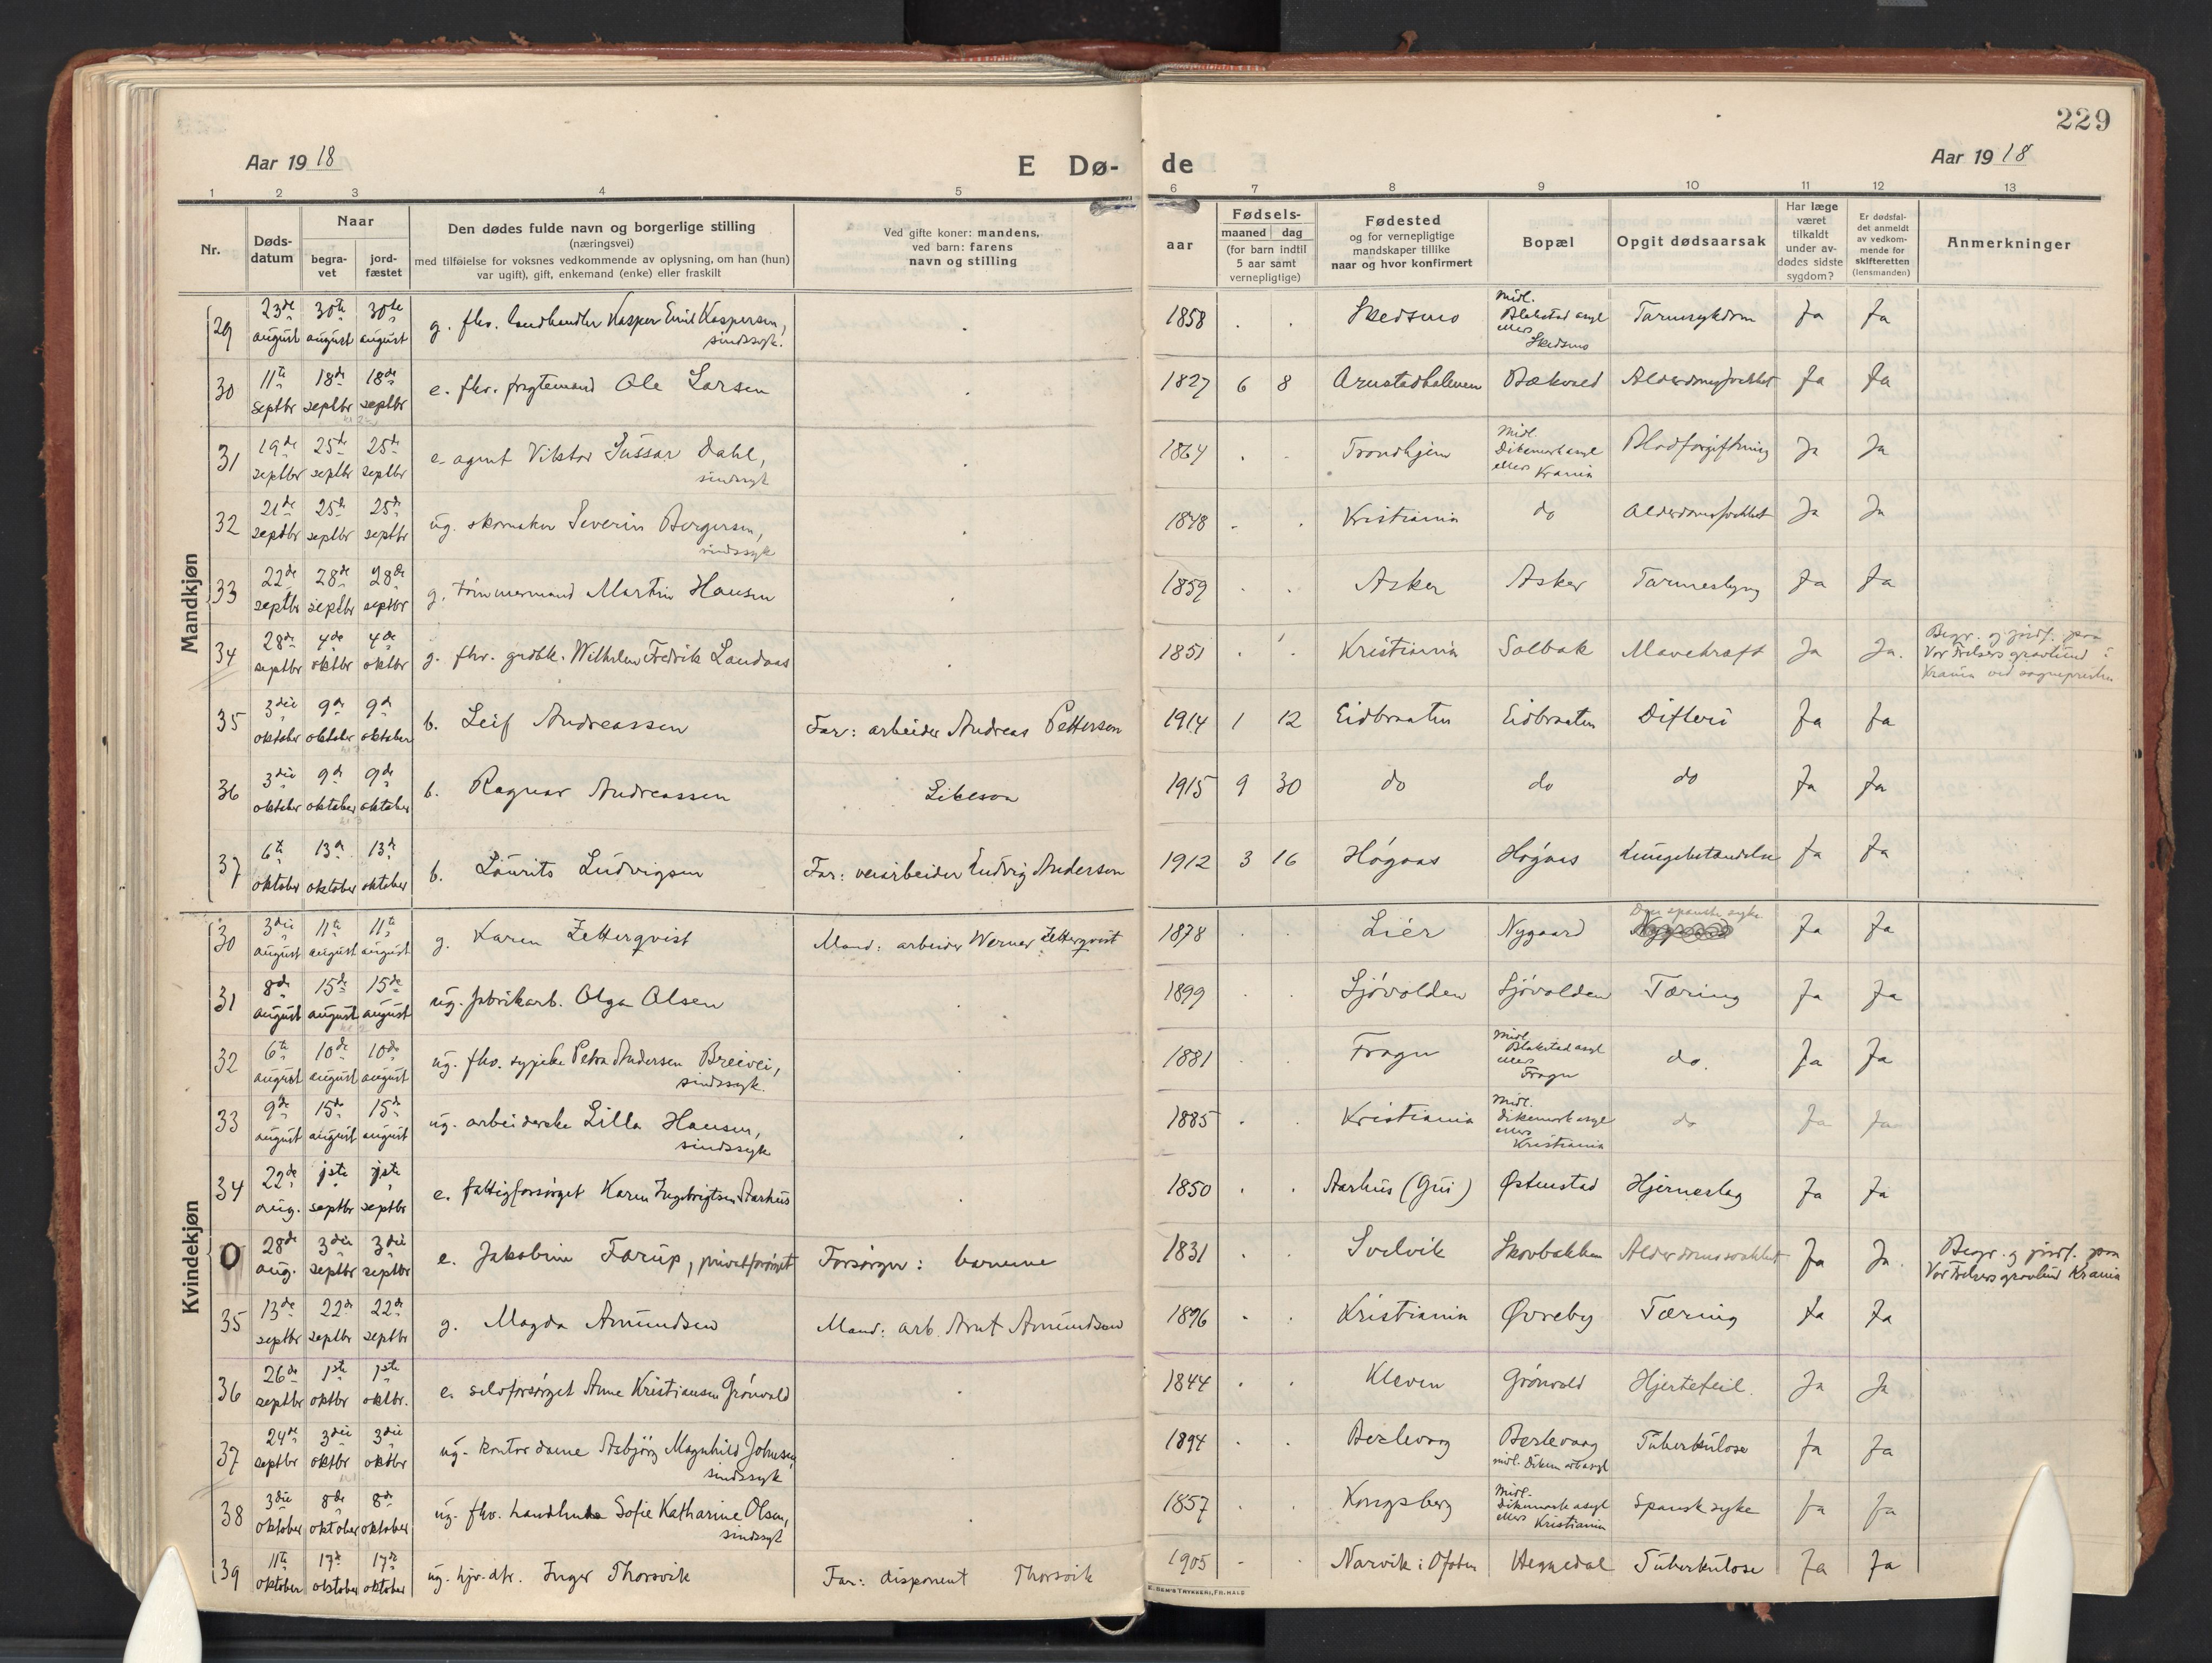 229
Aar 1918
E Dø-
de
Aar 1918
1 2 3 4 5 6 7 8 9 10 11 12 13
Nr.
Døds-
datum
Naar
begra-
vet
jord-
fæstet
Den dødes fulde navn og borgerlige stilling
(næringsvei)
med tilføielse for voksnes vedkommende av oplysning, om han (hun)
var ugift), gift, enkemand (enke) eller fraskilt
Ved gifte koner: mandens,
ved barn: farens
navn og stilling
aar
Fødsels-
maaned dag
(for barn indtil
5 aar samt
vernepligtige)
Fødested
og for vernepligtige
mandskaper tillike
naar og hvor konfirmert
Bopæl
Opgit dødsaarsak
Har læge
været
tilkaldt
under av-
dødes sidste
sygdom?
Er dødsfal-
det anmeldt
av vedkom-
mende for
skifteretten
(lensmanden)
Anmerkninger
Mandkjøn
29 23de august 30te august 30te august g. fhv. landhandler Kasper Emil Kaspersen, sindssyk. 1858 Skedsmo Midl. Blakstad asyl ellers Skedsmo Tarmsykdom Ja Ja
30 11te septbr 18de septbr 18de septbr e. fhv. Ole Larsen 1827 6 8 Arnestadhalvven Bækvold Alderdomssvakhet Ja Ja
31 19de septbr 25de septbr 25de septbr e. agent Viktor Dahl, sindssyk 1864 Trondhjem Midl. Dikemark asyl ellers Krania Blodforgiftning Ja Ja
32 21de septbr 25de septbr 25de septbr ug. skomaker Severin Bergersen, sindssyk 1848 Kristiania do Alderdomssvakhet Ja Ja
33 22de septbr 28de septbr 28de septbr g. tømmermand Martin Hansen 1859 Asker Asker Tarmeslyng Ja Ja
34 28de septbr 4de oktbr 4de oktbr g. fhv. grdbk. Wilhelm Fredrik Landaas 1851 Kristiania Solbak Mavekræft Ja Ja. Begr. og jordf. paa
Vor Frelsers gravlund i
Krania ved sogneprsten
35 3die oktober 9de oktober 9de oktober b. Leif Andreassen Far: arbeider Andreas Petterson 1914 1 12 Eidbraaten Eidbraaten Difteri Ja Ja
36 3die oktober 9de oktober 9de oktober b. Ragnar Andreassen Likeson 1915 9 30 do do do Ja Ja
37 6te oktober 13de oktober 13de oktober b. Laurits Ludvigsen Far: veiarbeider Ludvig Anderson 1912 3 16 Høgaas Høgaas Lungebetændelse Ja Ja
Kvindekjøn
30 3die august 11te august 11te august g. Karen Zetterqvist Mand: arbeider Werner Zetterqvist 1878 Lier Nygaard Den spanske syke Ja Ja
31 8de august 15de august 15de august ug. fabrikarb. Olga Olsen 1899 Sjøvolden Sjøvolden Tæring Ja Ja
32 6te august 10de august 10de august ug. fhv. sypike Petra Andersen Breivei, sindssyk. 1881 Frogn Midl. Blakstad asyl ellers Frogn do. Ja Ja
33 9de august 15de august 15de august ug. arbeiderske Lilla Hansen, sindssyk 1885 Kristiania Midl. Dikemark asyl ellers Kristiania do Ja Ja
34 22de aug. 1ste septbr 1ste septbr e. fattigforsørget Karen Ingebrigtsen Aarhus 1850 Aarhus (Gui) Østenstad Hjerneslag Ja Ja
0 28de aug. 3die septbr 3die septbr e. Jakobine Farup, privatforsørget Forsørger: barnene 1831 Svelvik Skovbakken Alderdomssvakhet Ja Ja. Begr. og jordf. paa
Vor Frelsers gravlund Krania
35 13de septbr 22de septbr 22de septbr g. Magda Amundsen Mand: arb. Arnt Amundsen 1896 Kristiania Øvreby Tæring Ja Ja
36 26de septbr 1ste oktbr 1ste oktbr. e. selvforsørget Anne Kristiansen Grønvold 1844 Kleven Grønvold Hjertefeil. Ja Ja
37 24de septbr 3die oktbr 3die oktbr ug. kontordame Asbjørg Magnhild Johnsen, sindssyk 1894 Berlevaag Berlevaag midl. Dikemarkasyl Tuberkulose Ja Ja
38 3die oktober 8de oktober 8de oktober ug. fhv. Sofie Katharine Olsen, sindssyk 1857 Kongsberg Midl. Dikemark asyl ellers Kristiania Spansk syke Ja Ja
39 11te oktober 17de oktober 17de oktober ug. hjv. dtr. Inger Thorsvik Far: disponent Thorsvik 1905 Narvik i Ofoten Heggedal Tuberkulose Ja Ja
E. SEM'S TRYKKERI, FR. HALD